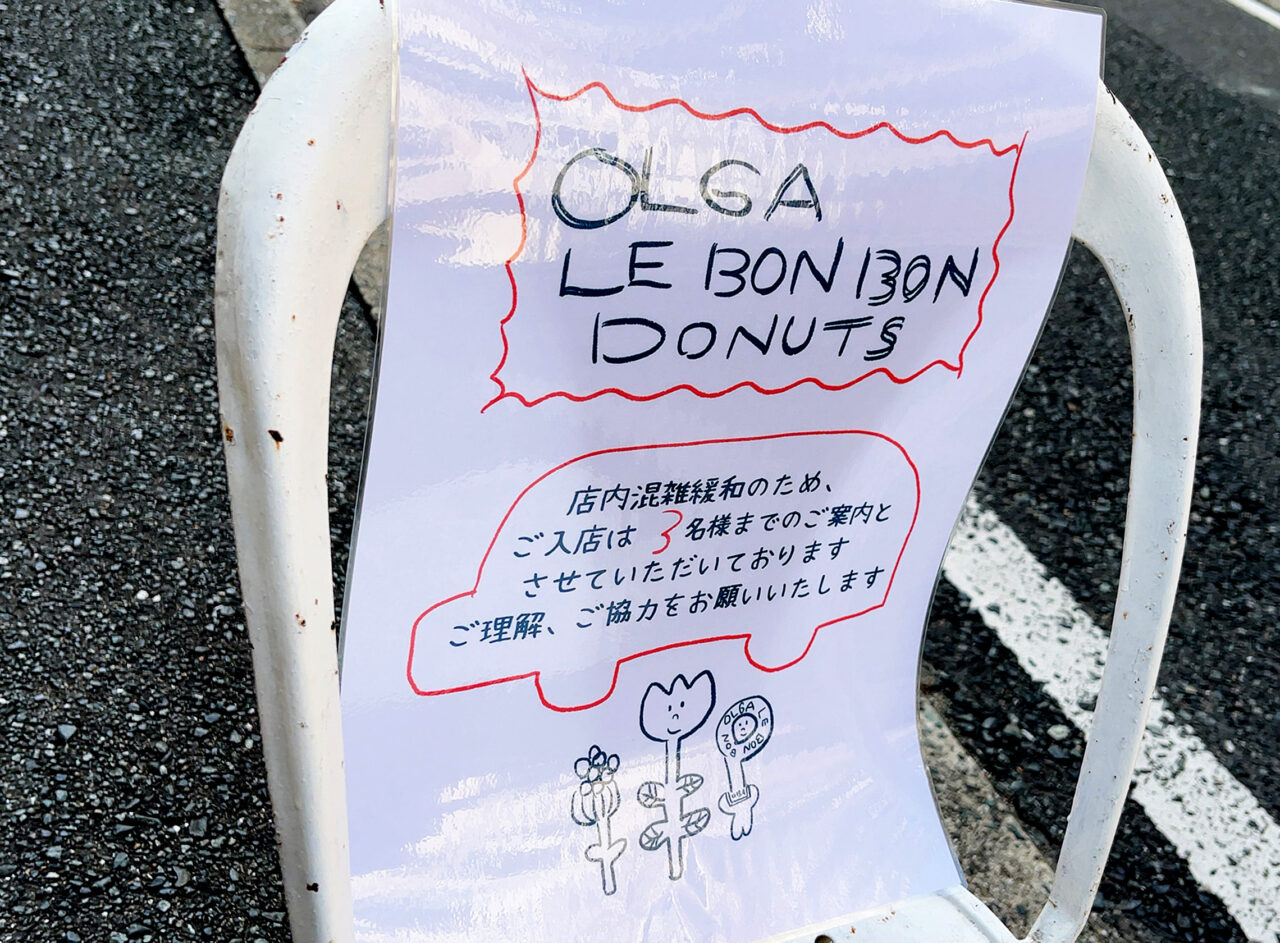 OLGA
LE BON BON
DONUTS
店内混雑緩和のため、
ご入店は 3 名様までのご案内と
させていただいております
ご理解、ご協力をお願いいたします
OLGA LE BON BON